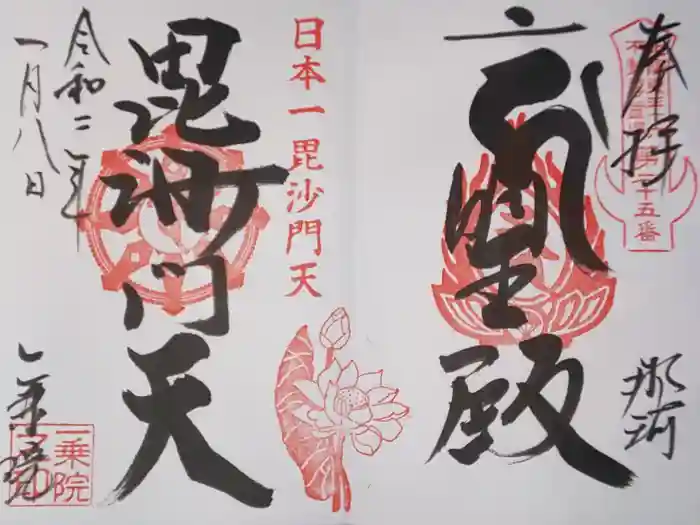 奉拝
明王殿
那珂
日本一毘沙門天
毘沙門天
令和二年
一月八日
一乗院
一乗院